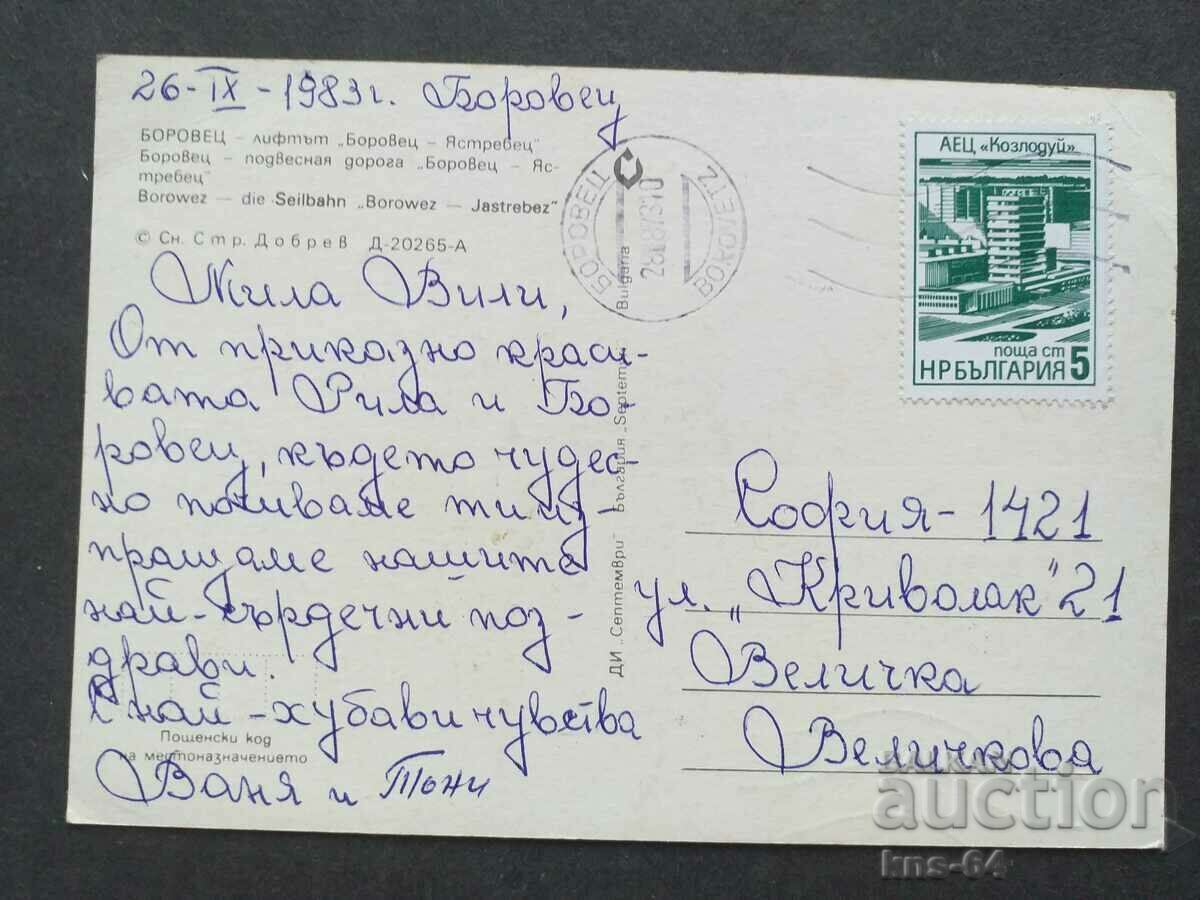 26-IX-1983г. Боровец
БОРОВЕЦ – лифтът „Боровец – Ястребец"
Боровец – подвесная дорога „Боровец – Яс-
требец"
Borowez – die Seilbahn „Borowez – Jastrebez"
© Сн. Стр. Добрев Д-20265-А
Мила Вили,
От приказно краси-
вата Рила и Бо-
ровец, където чудес-
но почиваме ти из-
пращаме нашите
най-сърдечни поз-
драви.
С най-хубави чувства
Ваня и Тони
Пощенски код
на местоназначението
ДИ „Септември"
България „Septem
Bulgaria
БОРОВЕЦ
BOROVETZ
АЕЦ «Козлодуй»
поща ст 5
НР БЪЛГАРИЯ
София-1421
ул. „Криволак" 21
Величка
Величкова
auction
kns-64